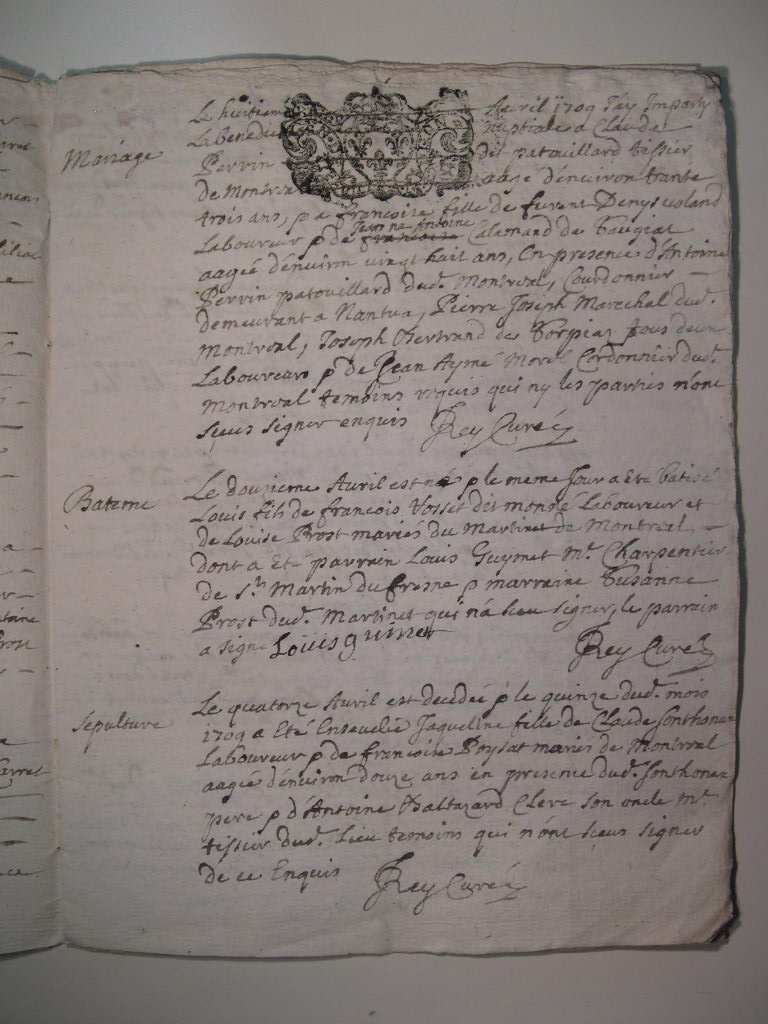 Mariage
Le huitieme Avril 1709 J'ay Imparty
La Benedict Nuptiale a Claude
Perrin dit patouillard tissier
de Montreal aagé d'environ trante
trois ans, p a françoise fille de furent Denys
Laboureur p de Jeanne Antoine françoise
aagée d'environ vingt huit ans, En presence d'Antoine
Perrin patouillard dud. Montreal, Courdonnier
demeurant a Nantua, Pierre Joseph Marechal dud.
Montreal, Joseph Bertrand de tous deux
Laboureurs p de Jean Aymé Morel Cordonnier dud.
Montreal temoins requis qui ny les parties n'ont
sçeus signer enquis Rey Curé
Bateme
Le douzieme Avril est né p le meme Jour a Eté batisé
Louis fils de françois Vosset dit Laboureur et
de Louise Prost mariés du Martinet de Montreal
dont a Eté parrain Louis Guymet Mr. Charpentier
de St. Martin du fresne p marraine Susanne
Prost dud. Martinet qui n'a sceu signer, le parrain
a signé Louis guimet
Rey Curé
sepulture
Le quatorze Avril est decedée p le quinze dud. mois
1709 a Eté Ensevelie Jaqueline fille de Claude Sonthonax
Laboureur p de françoise Poysat mariés de Montreal
aagée d'environ douze ans en presence dud. Sonthonax
pere p d'Antoine Baltazard Clerc son oncle Mr.
tissier dud. Lieu temoins qui n'ont sçeus signer
de ce Enquis Rey Curé